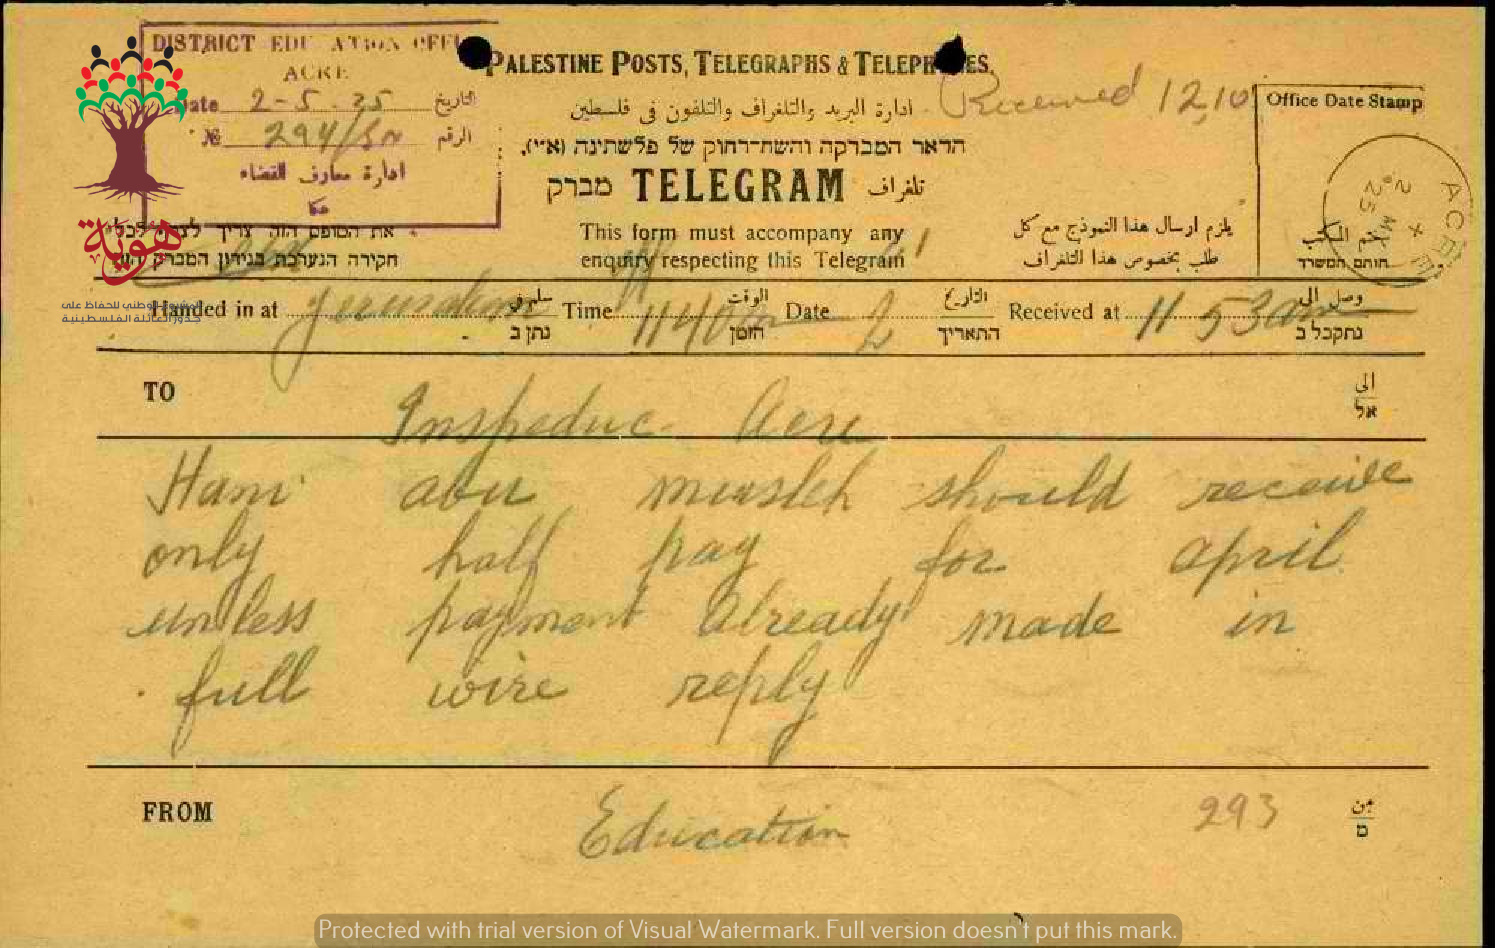 DISTRICT EDUCATION OFFICE
ACRE
Date 2-5-35 التاريخ
№ 294/ الرقم
ادارة معارف القضاء
عكا
هوية
المشروع الوطني للحفاظ على
جذور العائلة الفلسطينية
PALESTINE POSTS, TELEGRAPHS & TELEPHONES.
ادارة البريد والتلغراف والتلفون في فلسطين
הדאר המברקה והשח־רחוק של פלשתינה (א״י).
מברק TELEGRAM تلغراف
Received 12,10
Office Date Stamp
ACRE
2 MY
35
ختم المكتب
חותם המשרד
את הטופס הזה צריך לצרף לכל
חקירה הנערכת בנידון המברק הזה
This form must accompany any
enquiry respecting this Telegram
يلزم ارسال هذا النموذج مع كل
طلب بخصوص هذا التلغراف
Handed in at Jerusalem نתן ב Time 1140 الوقت הזמן Date 2 التاريخ התאריך Received at 11 53am وصل الى נתקבל ב
TO Inspeduc Acre الى אל
Hani abu musleh should receive
only half pay for april
unless payment already made in
full wire reply
FROM Education 293 من מ
Protected with trial version of Visual Watermark. Full version doesn't put this mark.